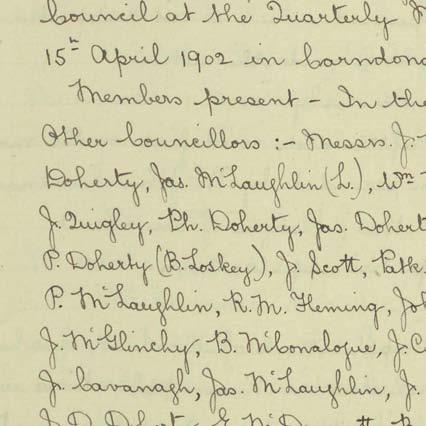 Council at the Quarterly
15th April 1902 in Carndona
Members present - In the
Other Councillors :- Messrs. J.
Doherty, Jas. McLaughlin (L.), Wm
J. Quigley, Ph. Doherty, Jas. Dohert
P. Doherty (B. Loskey), J. Scott, Patk.
P. McLaughlin, R. M. Fleming, Joh
J. McGlinchy, B. McConalogue, J. C
J. Cavanagh, Jas. McLaughlin, J.
J. D. Doherty